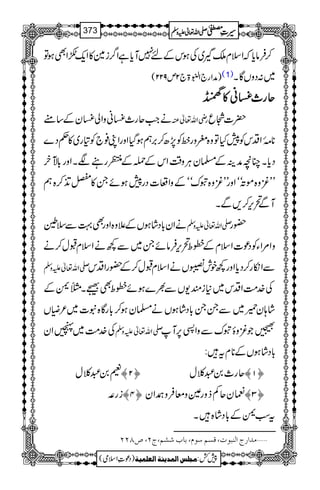 سیرتِ مصطفی صلی اللہ تعالیٰ علیہ وسلم 373
کر فرمایا کہ اسلام ملک گیری کی ہوس کے لئے نہیں آیا ہے اگر زمین کا ایک ٹکڑا بھی ہو تو
میں نہ دوں گا۔ (۱) (مدارج النبوۃ ج۲ ص۲۲۹)
حارث غسانی کا گھمنڈ
حضرت شجاع رضی اللہ تعالیٰ عنہ نے جب حارث غسانی والی غسان کے سامنے
نامۂ اقدس کو پیش کیا تو وہ مغرور خط کو پڑھ کر برہم ہو گیا اور اپنی فوج کو تیاری کا حکم دے
دیا۔ چنانچہ مدینہ کے مسلمان ہر وقت اس کے حملہ کے منتظر رہنے لگے۔ اور بالآخر
’’غزوہ موتہ‘‘ اور ’’غزوہ تبوک‘‘ کے واقعات درپیش ہوئے جن کا مفصل تذکرہ ہم
آگے تحریر کریں گے۔
حضور صلی اللہ تعالیٰ علیہ وسلم نے ان بادشاہوں کے علاوہ اور بھی بہت سے سلاطین
و امراء کو دعوت اسلام کے خطوط تحریر فرمائے جن میں سے کچھ نے اسلام قبول کرنے
سے انکار کر دیا اور کچھ خوش نصیبوں نے اسلام قبول کر کے حضور اقدس صلی اللہ تعالیٰ علیہ وسلم
کی خدمت اقدس میں نیاز مندیوں سے بھرے ہوئے خطوط بھی بھیجے۔ مثلاً یمن کے
شاہان حمیر میں سے جن جن بادشاہوں نے مسلمان ہو کر بارگاہ نبوت میں عرضیاں
بھیجیں جو غزوۂ تبوک سے واپسی پر آپ صلی اللہ تعالیٰ علیہ وسلم کی خدمت میں پہنچیں ان
بادشاہوں کے نام یہ ہیں:
﴿۱﴾ حارث بن عبد کلال ﴿۲﴾ نعیم بن عبد کلال
﴿۳﴾ نعمان حاکم ذورعین و معافر و ہمدان ﴿۴﴾ زرعہ
یہ سب یمن کے بادشاہ ہیں۔
……مدارج النبوت، قسم سوم، باب ششم، ج۲، ص۲۲۸
پیش کش: مجلس المدینۃ العلمیۃ (دعوتِ اسلامی)